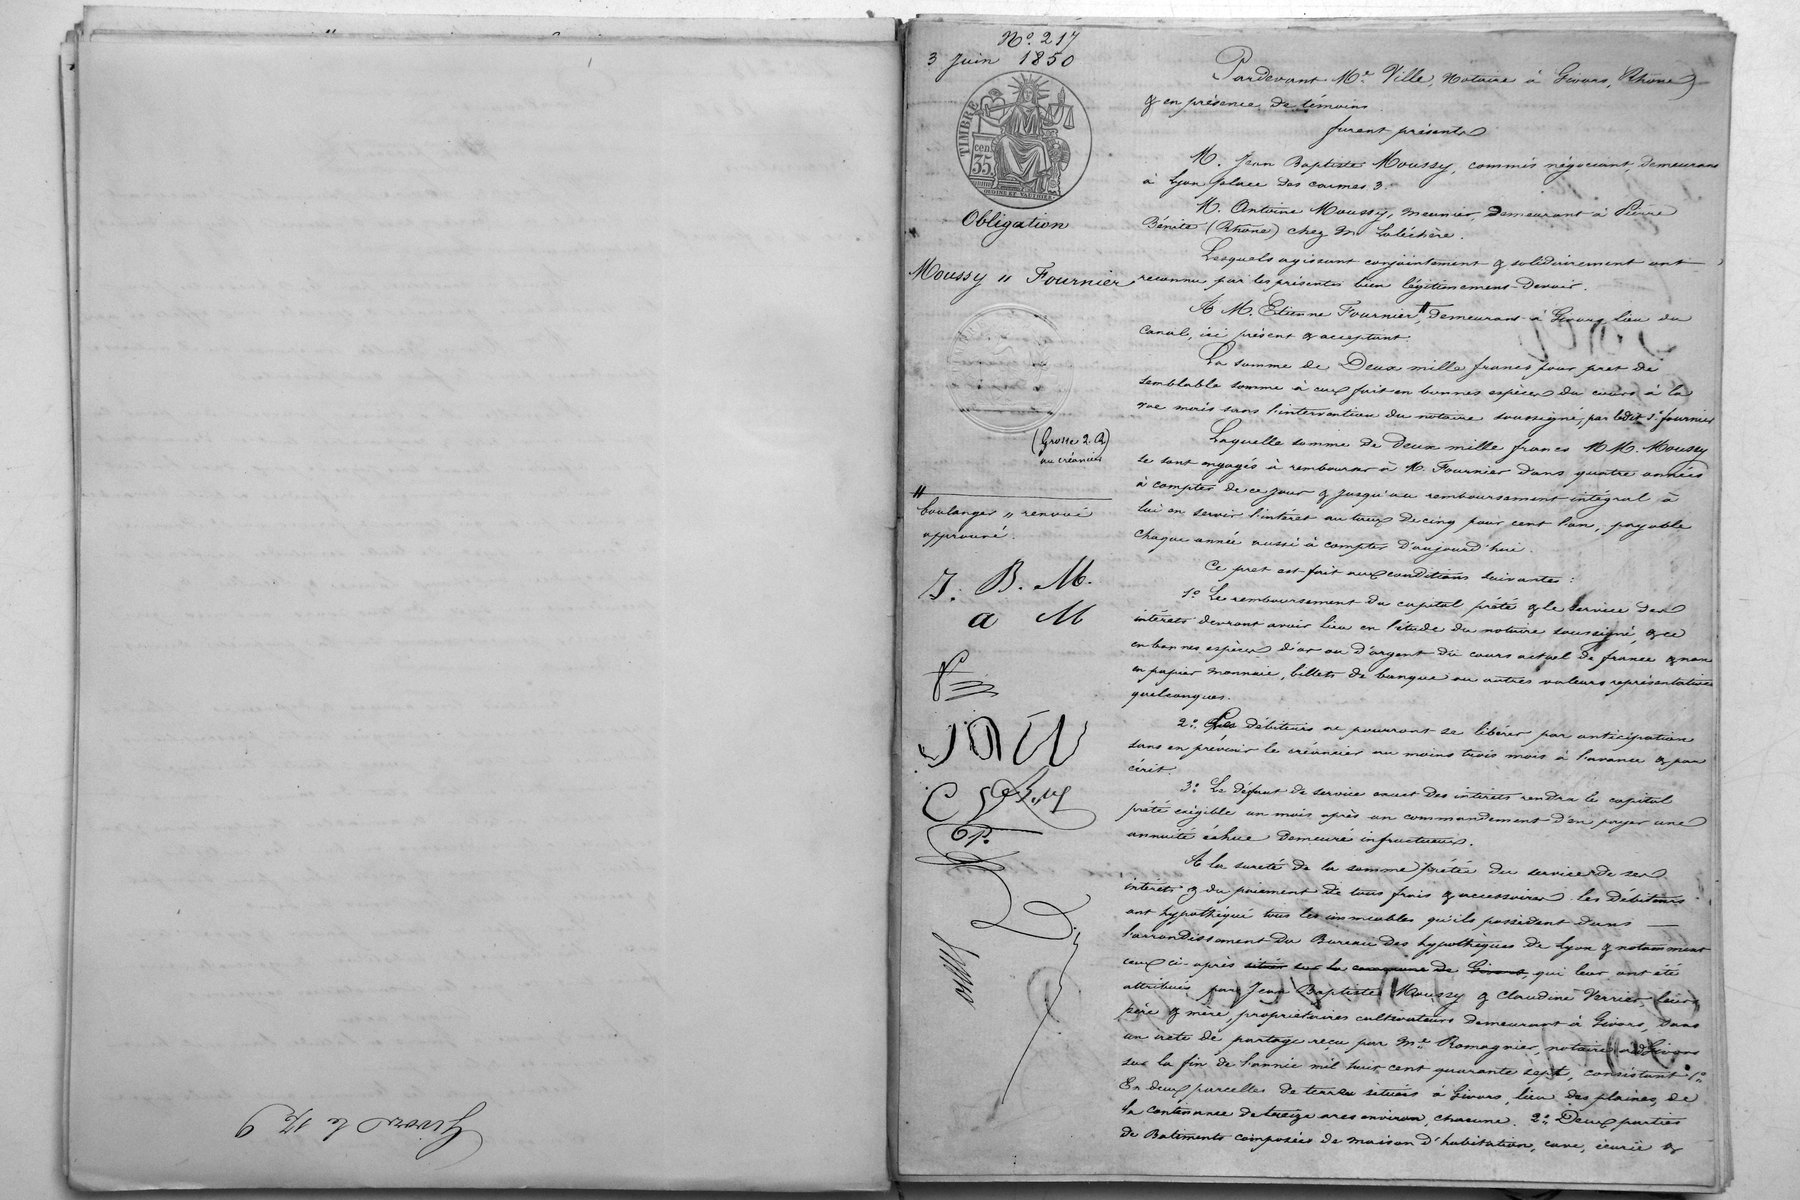 Givors le 12 9
No. 217
3 Juin 1850
TIMBRE
cent
35
Obligation
Moussy " Fournier
(Grosse 2. R)
au créancier
"
boulanger " renvoi
approuvé.
J. B. M.
a M
Pardevant Me. Ville, Notaire à Givors, (Rhône)
& en présence de témoins.
furent présents
M. Jean Baptiste Moussy, commis négociant, demeurant
à Lyon place des carmes 3.
M. Antoine Moussy, meunier, demeurant à Pierre
Bénite (Rhône) chez M
Lesquels agissant conjointement & solidairement ont
reconnu par les présentes bien légitimement devoir.
A M. Etienne Fournier", demeurant à Givors, lieu du
Canal, ici présent & acceptant.
La somme de Deux mille francs pour pret de
semblable somme à eux fait en bonnes espèces du cours à la
vue mais sans l'intervention du notaire soussigné, par ledit Sr. fournier
Laquelle somme de Deux mille francs MM. Moussy
se sont engagés à rembourser à M. Fournier dans quatre années
à compter de ce jour & jusqu'au remboursement intégral à
lui en servir l'intérêt au taux de cinq pour cent l'an, payable
chaque année aussi à compter d'aujourd'hui.
Ce pret est fait aux conditions suivantes :
1o. Le remboursement du capital prêté & le service des
intérêts devront avoir lieu en l'étude du notaire soussigné, & ce
en bonnes espèces d'or ou d'argent du cours actuel de france & non
en papier monnaie, billets de banque ou autres valeurs représentatives
quelconques.
2o. Les débiteurs ne pourront se libérer par anticipation
sans en prévenir le créancier au moins trois mois à l'avance & par
écrit.
3o. Le défaut de service exact des intérêts rendra le capital
prêté exigible un mois après un commandement d'en payer une
annuité échue demeuré infructueux.
A la sureté de la somme prêtée du service de ses
intérêts & du paiement de tous frais & accessoires les débiteurs
ont hypothéqué tous les immeubles qu'ils possèdent dans
l'arrondissement du Bureau des hypothèques de Lyon & notamment
ceux ci-après situés sur la commune de Givors, qui leur ont été
attribués par Jean Baptiste Moussy & Claudine Verrier leurs
père & mère, propriétaires cultivateurs demeurant à Givors, dans
un acte de partage reçu par Me. Romagnier, notaire à Givors
sur la fin de l'année mil huit cent quarante sept, consistant 1o.
En deux parcelles de terre situées à Givors, lieu des plaines, de
la contenance de treize ares environ, chacune. 2o. Deux parties
de Batiments composées de maison d'habitation, cave, écurie &